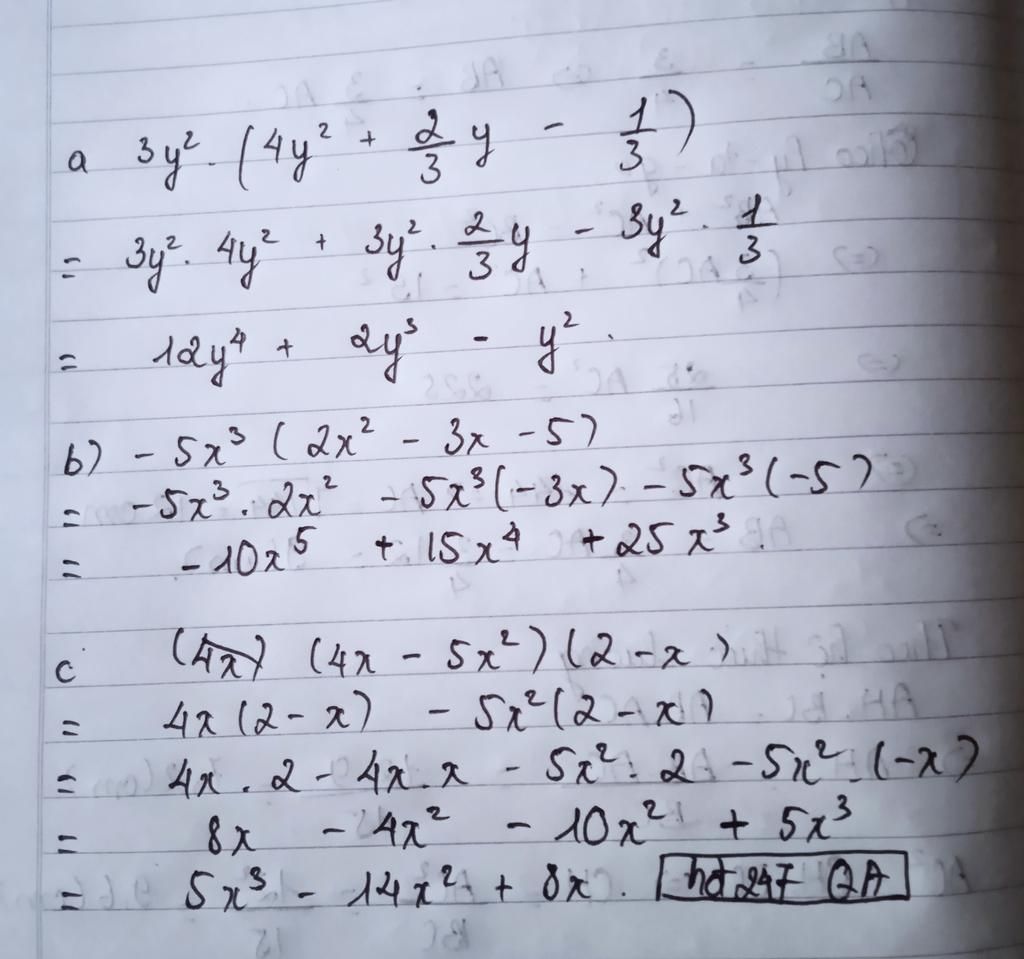 a 3y². (4y² + 2/3 y - 1/3)
= 3y². 4y² + 3y². 2/3 y - 3y². 1/3
= 12y⁴ + 2y³ - y².
b) -5x³ (2x² - 3x - 5)
= -5x³. 2x² - 5x³(-3x) - 5x³(-5)
= -10x⁵ + 15x⁴ + 25x³.
c (4x) (4x - 5x²)(2-x)
= 4x(2-x) - 5x²(2-x)
= 4x.2 - 4x.x - 5x².2 - 5x².(-x)
= 8x - 4x² - 10x² + 5x³
= 5x³ - 14x² + 8x. hd247 QA